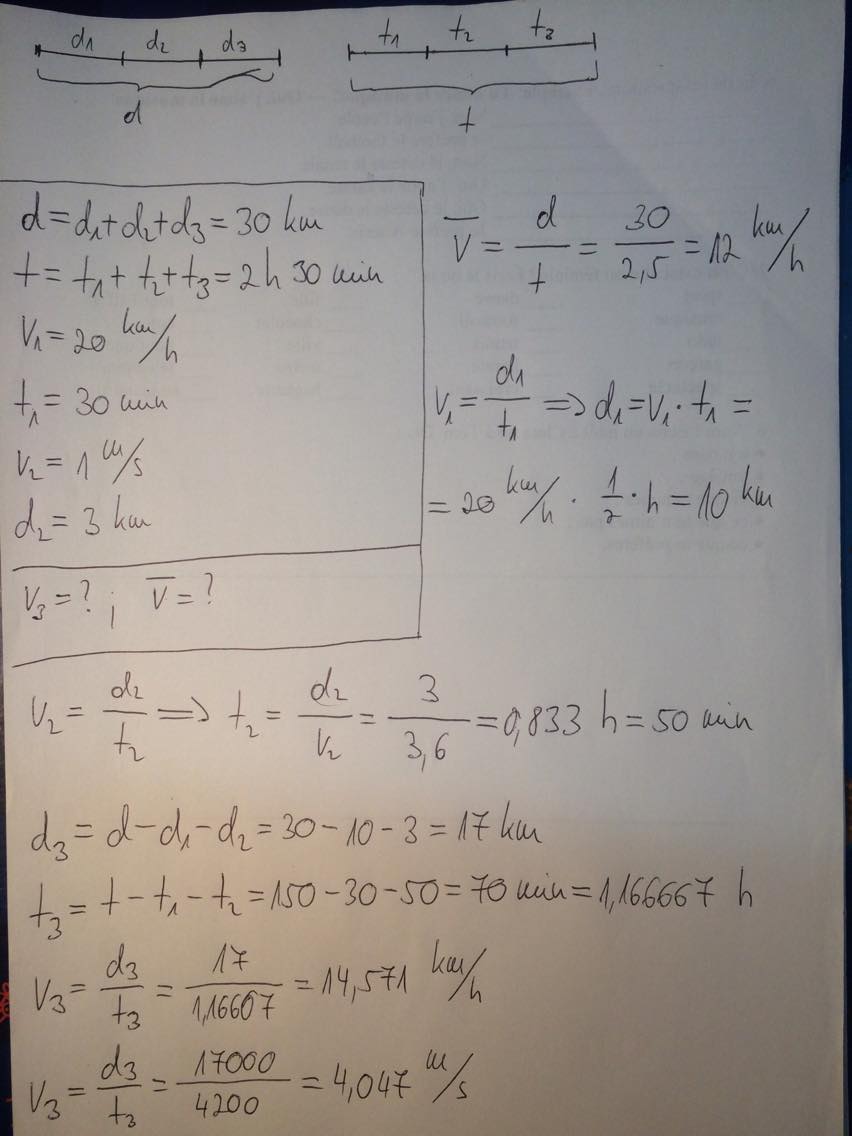 d1 d2 d3
d
t1 t2 t3
t
d = d1 + d2 + d3 = 30 km
t = t1 + t2 + t3 = 2h 30 min
V1 = 20 km/h
t1 = 30 min
V2 = 1 m/s
d2 = 3 km
V3 = ? ; V̅ = ?
V̅ = d/t = 30/2,5 = 12 km/h
V1 = d1/t1 => d1 = V1 · t1 =
= 20 km/h · 1/2 · h = 10 km
V2 = d2/t2 => t2 = d2/V2 = 3/3,6 = 0,833 h = 50 min
d3 = d - d1 - d2 = 30 - 10 - 3 = 17 km
t3 = t - t1 - t2 = 150 - 30 - 50 = 70 min = 1,166667 h
V3 = d3/t3 = 17/1,16667 = 14,571 km/h
V3 = d3/t3 = 17000/4200 = 4,047 m/s